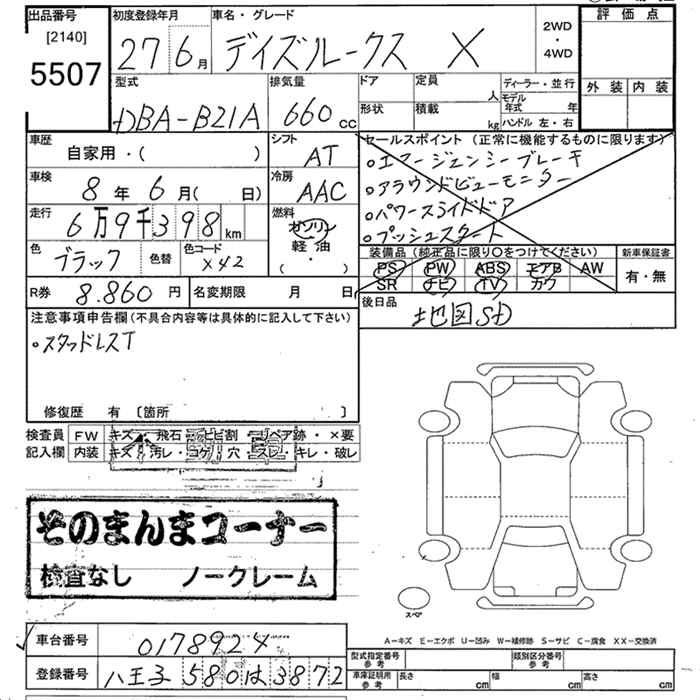 出品番号
[2140]
5507
初度登録年月
27 6月
車名・グレード
デイズルークス X
2WD
・
4WD
評価点
外装 内装
型式
DBA-B21A
排気量
660cc
ドア
形状
定員 人
積載 kg
ディーラー・並行
モデル年式 年
ハンドル 左・右
車歴
自家用・( )
シフト
AT
車検
8年 6月( 日)
冷房
AAC
走行
6万9千398km
燃料
ガソリン
軽油
( ・ )
色
ブラック
色替
色コード
X42
セールスポイント(正常に機能するものに限ります)
・エマージェンシーブレーキ
・アラウンドビューモニター
・パワースライドドア
・プッシュスタート
装備品(純正品に限り○をつけてください)
PS PW ABS エアB AW
SR ナビ TV カワ
新車保証書
有・無
R券 8.860円
名変期限 月 日
後日品
地図SD
注意事項申告欄(不具合内容等は具体的に記入して下さい)
・スタッドレスT
修復歴 有 〔箇所 〕
検査員
記入欄
FW キズ・飛石・ヒビ割・リペア跡・×要
内装 キズ・汚レ・コゲ・穴・スレ・キレ・破レ
不動車
そのまんまコーナー
検査なし ノークレーム
スペア
A-キズ E-エクボ U-凹み W-補修跡 S-サビ C-腐食 XX-交換済
車台番号 0178924
登録番号 八王子 580 は 3872
型式指定番号
参考
類別区分番号
参考
車庫証明用
参考
長さ cm 幅 cm 高さ cm